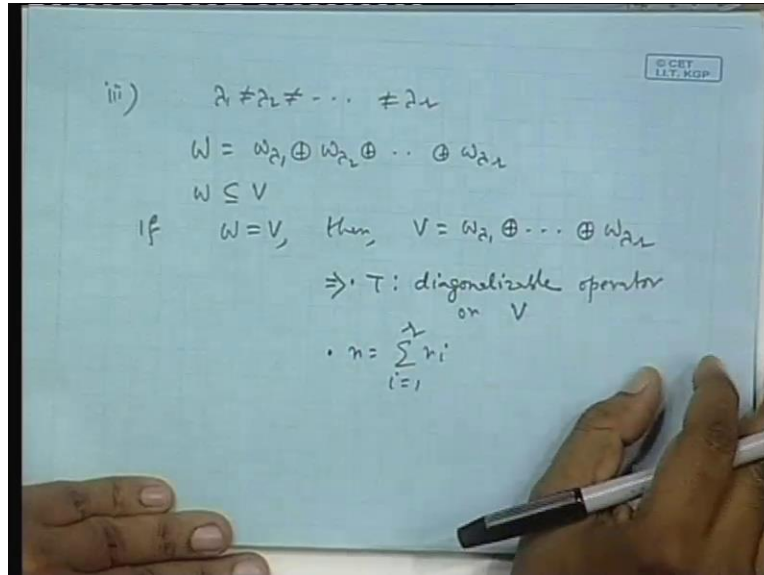 © CET
I.I.T. KGP
iii) λ₁ ≠ λ₂ ≠ - - - ≠ λr
W = Wλ₁ ⊕ Wλ₂ ⊕ . . ⊕ Wλr
W ⊆ V
If W = V, then, V = Wλ₁ ⊕ - - - ⊕ Wλr
⇒ · T : diagonalizable operator
on V
· n = ∑ᵢ₌₁ʳ ri